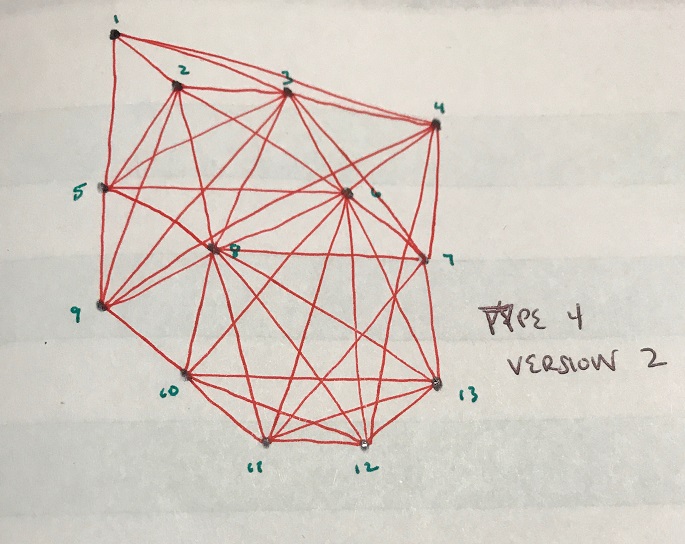 1
2
3
4
5
6
7
8
9
10
11
12
13
TYPE 4
VERSION 2